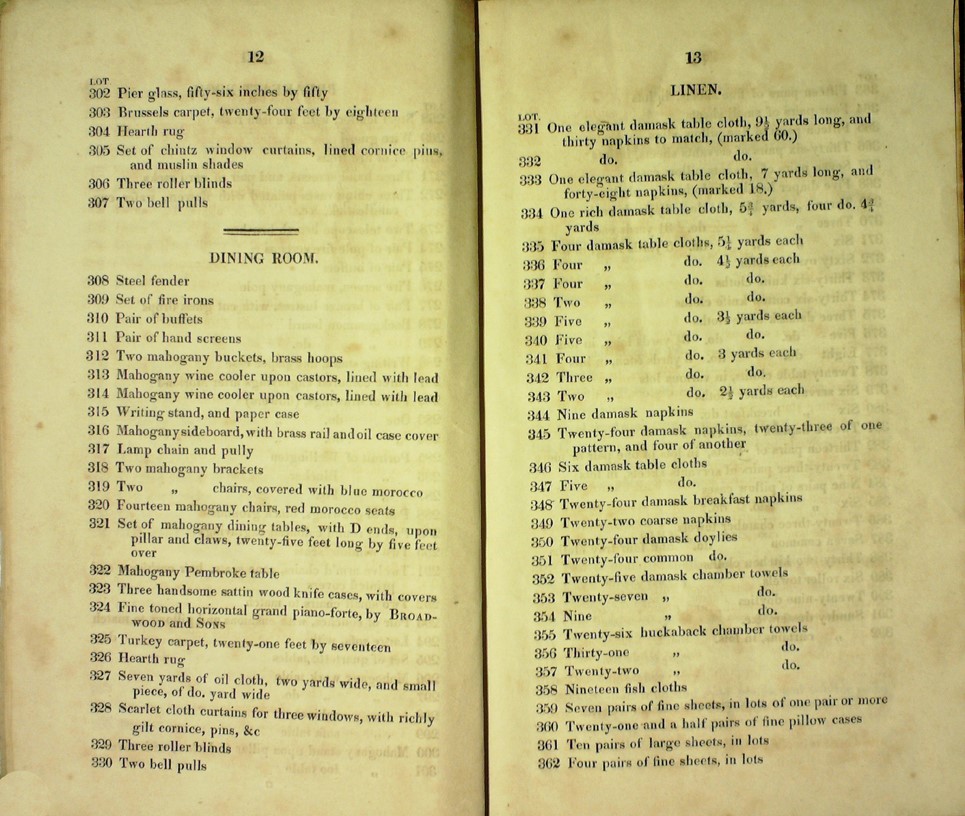 12
LOT
302 Pier glass, fifty-six inches by fifty
303 Brussels carpet, twenty-four feet by eighteen
304 Hearth rug
305 Set of chintz window curtains, lined cornice pins,
and muslin shades
306 Three roller blinds
307 Two bell pulls
DINING ROOM.
308 Steel fender
309 Set of fire irons
310 Pair of buffets
311 Pair of hand screens
312 Two mahogany buckets, brass hoops
313 Mahogany wine cooler upon castors, lined with lead
314 Mahogany wine cooler upon castors, lined with lead
315 Writing stand, and paper case
316 Mahogany sideboard, with brass rail and oil case cover
317 Lamp chain and pully
318 Two mahogany brackets
319 Two „ chairs, covered with blue morocco
320 Fourteen mahogany chairs, red morocco seats
321 Set of mahogany dining tables, with D ends, upon
pillar and claws, twenty-five feet long by five feet
over
322 Mahogany Pembroke table
323 Three handsome sattin wood knife cases, with covers
324 Fine toned horizontal grand piano-forte, by BROAD-
WOOD and SONS
325 Turkey carpet, twenty-one feet by seventeen
326 Hearth rug
327 Seven yards of oil cloth, two yards wide, and small
piece, of do. yard wide
328 Scarlet cloth curtains for three windows, with richly
gilt cornice, pins, &c
329 Three roller blinds
330 Two bell pulls
13
LINEN.
LOT.
331 One elegant damask table cloth, 9½ yards long, and
thirty napkins to match, (marked 60.)
332 do. do.
333 One elegant damask table cloth, 7 yards long, and
forty-eight napkins, (marked 18.)
334 One rich damask table cloth, 5¾ yards, four do. 4¾
yards
335 Four damask table cloths, 5½ yards each
336 Four „ do. 4½ yards each
337 Four „ do. do.
338 Two „ do. do.
339 Five „ do. 3½ yards each
340 Five „ do. do.
341 Four „ do. 3 yards each
342 Three „ do. do.
343 Two „ do. 2½ yards each
344 Nine damask napkins
345 Twenty-four damask napkins, twenty-three of one
pattern, and four of another
346 Six damask table cloths
347 Five „ do.
348 Twenty-four damask breakfast napkins
349 Twenty-two coarse napkins
350 Twenty-four damask doylies
351 Twenty-four common do.
352 Twenty-five damask chamber towels
353 Twenty-seven „ do.
354 Nine „ do.
355 Twenty-six huckaback chamber towels
356 Thirty-one „ do.
357 Twenty-two „ do.
358 Nineteen fish cloths
359 Seven pairs of fine sheets, in lots of one pair or more
360 Twenty-one and a half pairs of fine pillow cases
361 Ten pairs of large sheets, in lots
362 Four pairs of fine sheets, in lots